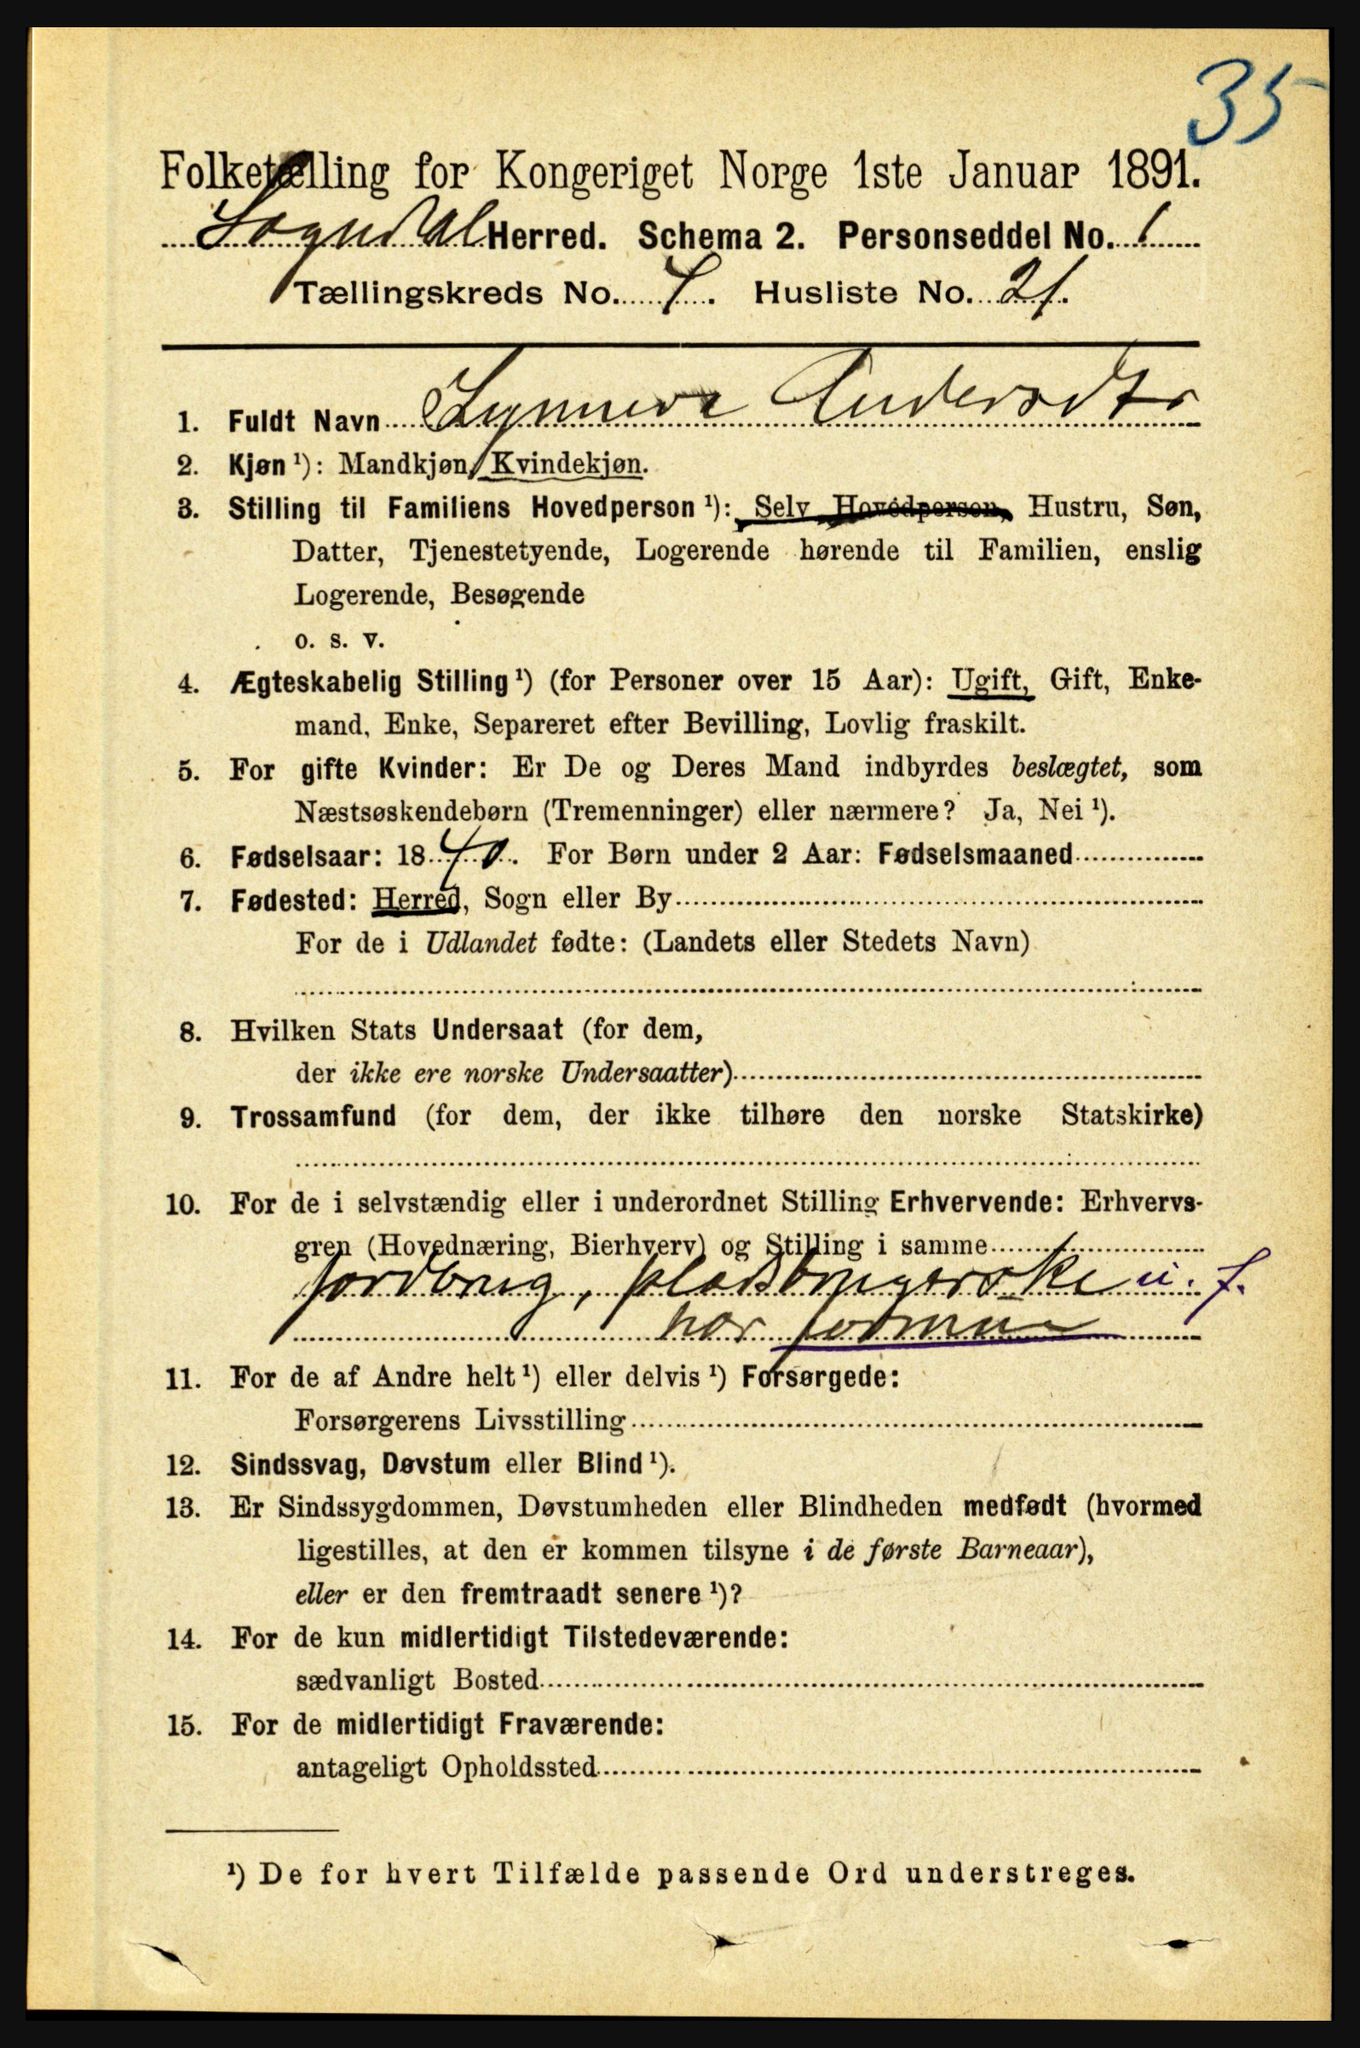 35
Folketælling for Kongeriget Norge 1ste Januar 1891.
Sogndal Herred. Schema 2. Personseddel No. 1
Tællingskreds No. 4. Husliste No. 21.
1. Fuldt Navn Synneva Andersdtr
2. Kjøn ¹): Mandkjøn, Kvindekjøn.
3. Stilling til Familiens Hovedperson ¹): Selv Hovedperson, Hustru, Søn,
Datter, Tjenestetyende, Logerende hørende til Familien, enslig
Logerende, Besøgende
o. s. v.
4. Ægteskabelig Stilling ¹) (for Personer over 15 Aar): Ugift, Gift, Enke-
mand, Enke, Separeret efter Bevilling, Lovlig fraskilt.
5. For gifte Kvinder: Er De og Deres Mand indbyrdes beslægtet, som
Næstsøskendebørn (Tremenninger) eller nærmere? Ja, Nei ¹).
6. Fødselsaar: 1840. For Børn under 2 Aar: Fødselsmaaned
7. Fødested: Herred, Sogn eller By
For de i Udlandet fødte: (Landets eller Stedets Navn)
8. Hvilken Stats Undersaat (for dem,
der ikke ere norske Undersaatter)
9. Trossamfund (for dem, der ikke tilhøre den norske Statskirke)
10. For de i selvstændig eller i underordnet Stilling Erhvervende: Erhvervs-
gren (Hovednæring, Bierhverv) og Stilling i samme
jordbrug, pladsbrugerske u. f.
har formue
11. For de af Andre helt ¹) eller delvis ¹) Forsørgede:
Forsørgerens Livsstilling
12. Sindssvag, Døvstum eller Blind ¹).
13. Er Sindssygdommen, Døvstumheden eller Blindheden medfødt (hvormed
ligestilles, at den er kommen tilsyne i de første Barneaar),
eller er den fremtraadt senere ¹)?
14. For de kun midlertidigt Tilstedeværende:
sædvanligt Bosted
15. For de midlertidigt Fraværende:
antageligt Opholdssted
¹) De for hvert Tilfælde passende Ord understreges.